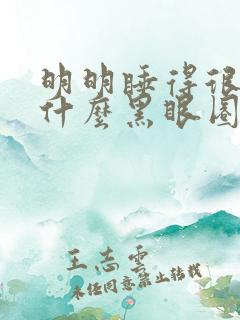 明明睡得很
什麼黑眼圈
王志雲
未经同意禁止转载